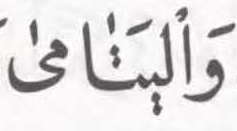 وَالْيَتَامٰى